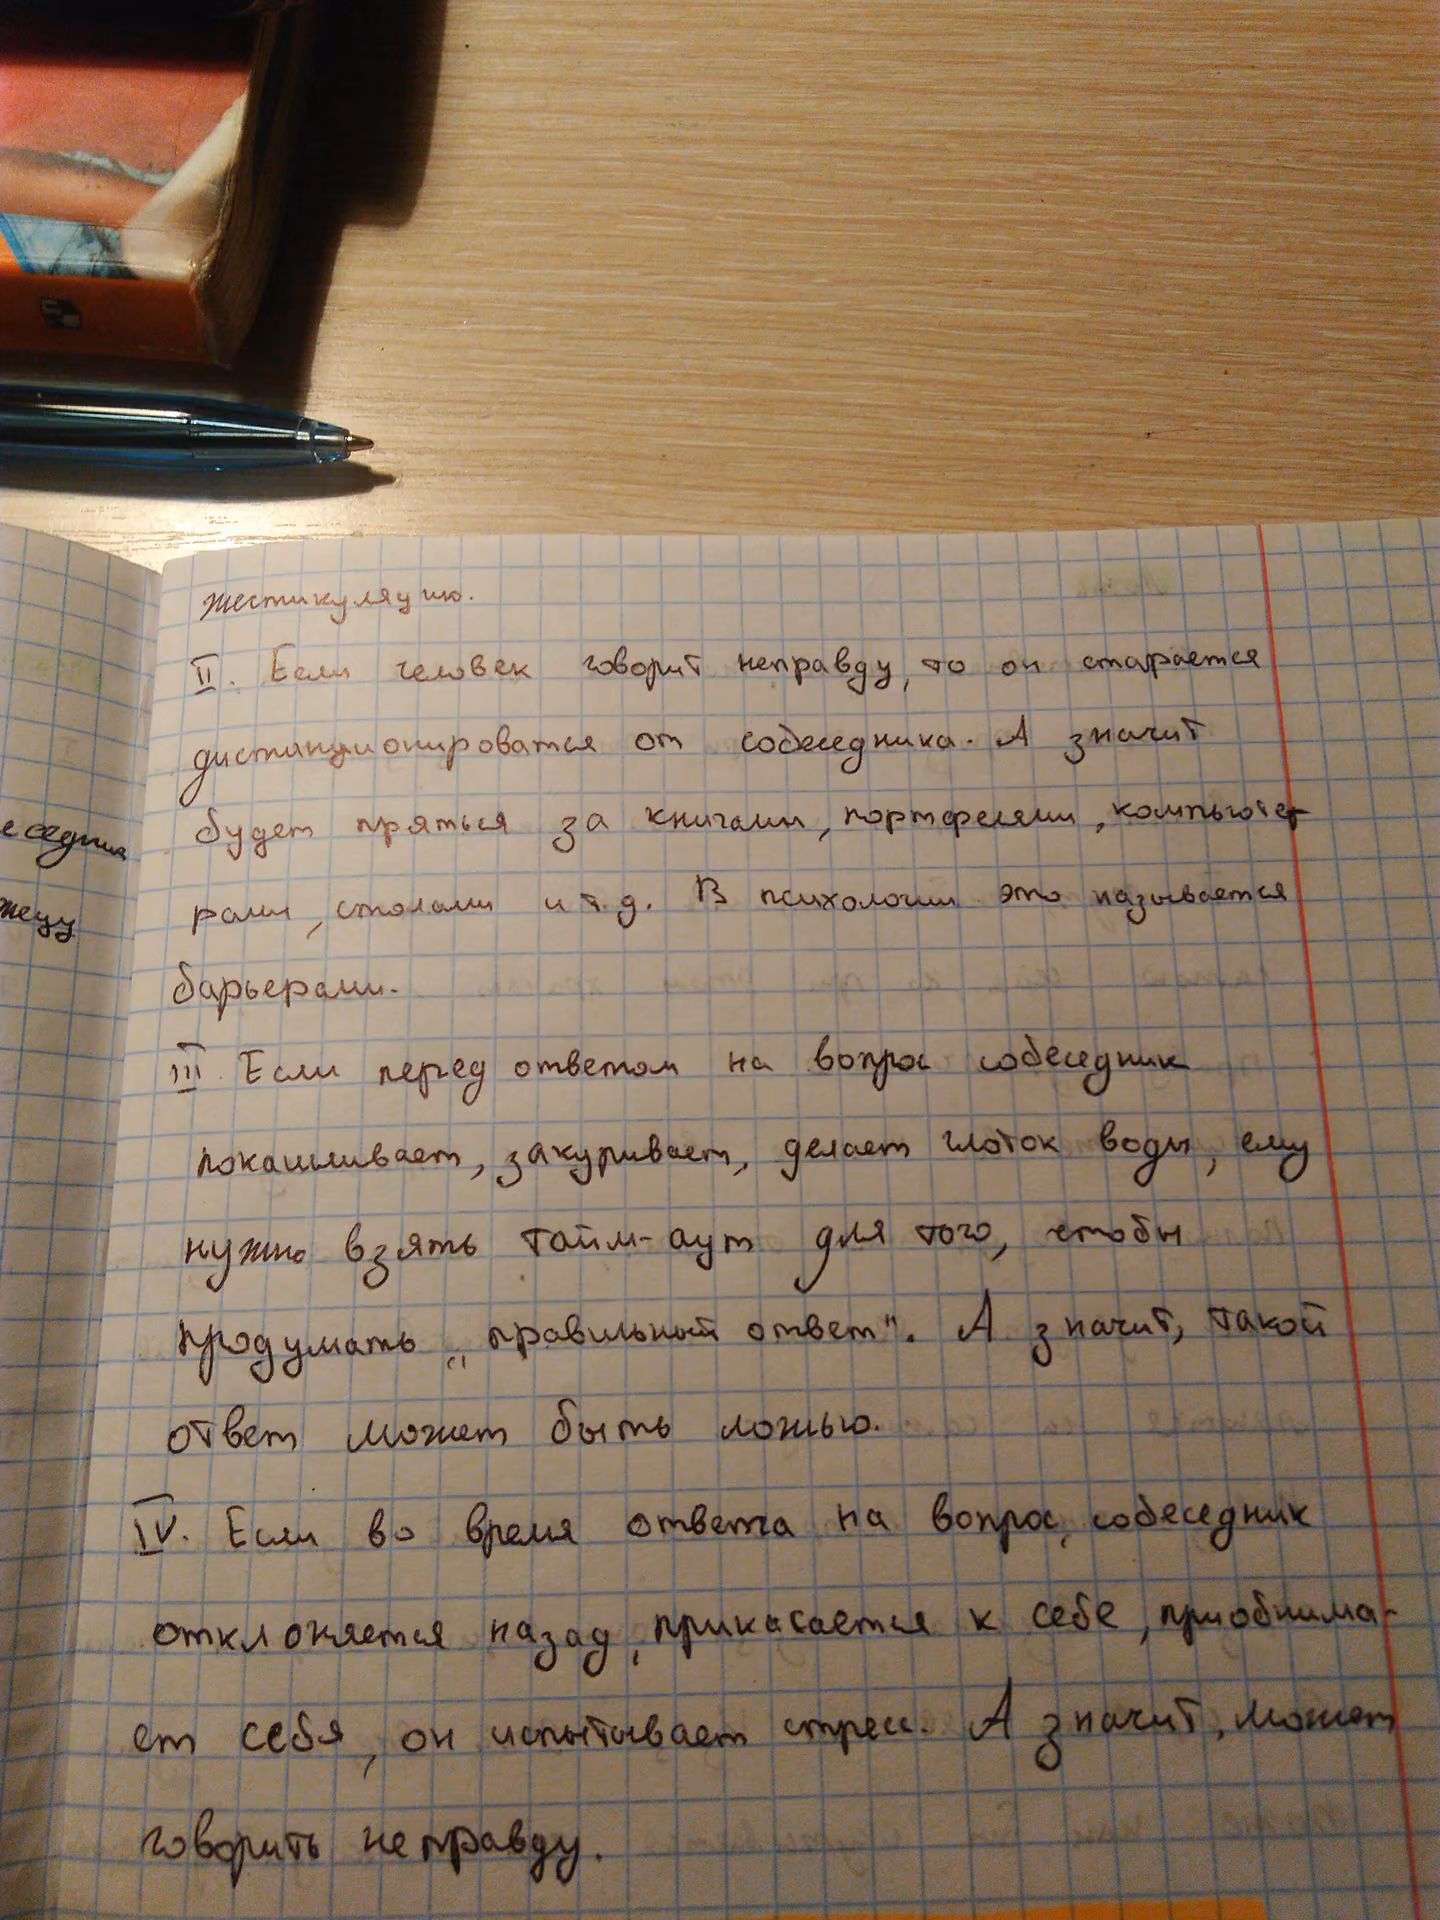 жестикуляцию.
II. Если человек говорит неправду, то он старается
дистанционироватся от собеседника. А значит
будет пряться за книгами, портфелями, компьютер
рами, столами и т.д. В психологии это называется
барьерами.
III. Если перед ответом на вопрос собеседник
покашливает, закуривает, делает глоток воды, ему
нужно взять тайм-аут для того, чтобы
продумать „правильный ответ". А значит, такой
ответ может быть ложью.
IV. Если во время ответа на вопрос, собеседник
отклоняется назад, прикасается к себе, приобнима-
ет себя, он испытывает стресс. А значит, может
говорить неправду.